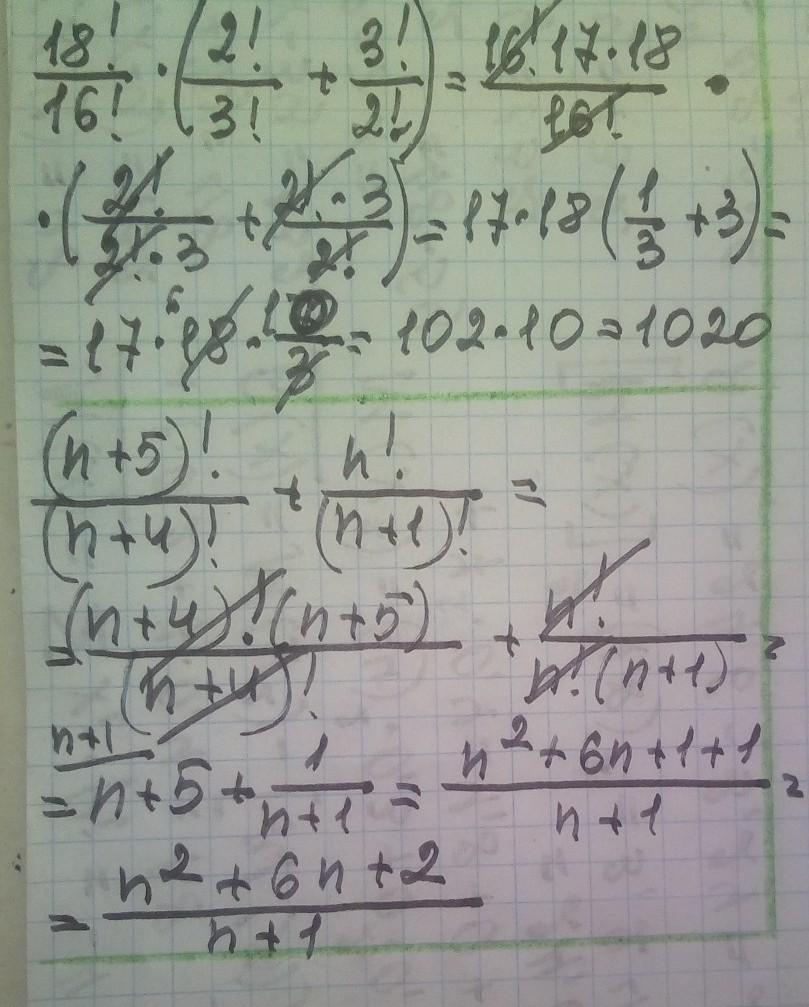 18!/16! · (2!/3! + 3!/2!) = 16! 17·18/16! ·
· (2!/2!·3 + 2!·3/2!) = 17·18 (1/3 + 3) =
= 17·18⁶·10/3 = 102·10 = 1020
(n+5)!/(n+4)! + n!/(n+1)! =
= (n+4)!(n+5)/(n+4)! + n!/n!(n+1) =
n+1
= n+5 + 1/n+1 = n²+6n+1+1/n+1 =
= n²+6n+2/n+1